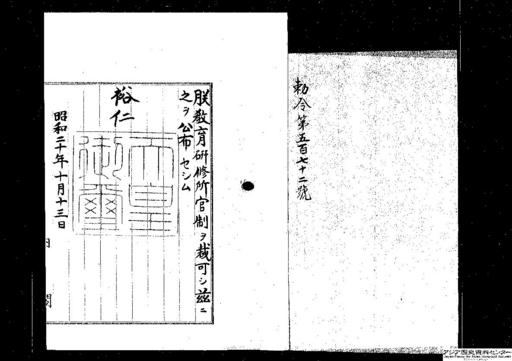 勅令第五百七十二號
朕教育研修所官制ヲ裁可シ茲ニ
之ヲ公布セシム
裕仁
天皇御璽
昭和二十年十月十三日
内閣
アジア歴史資料センター